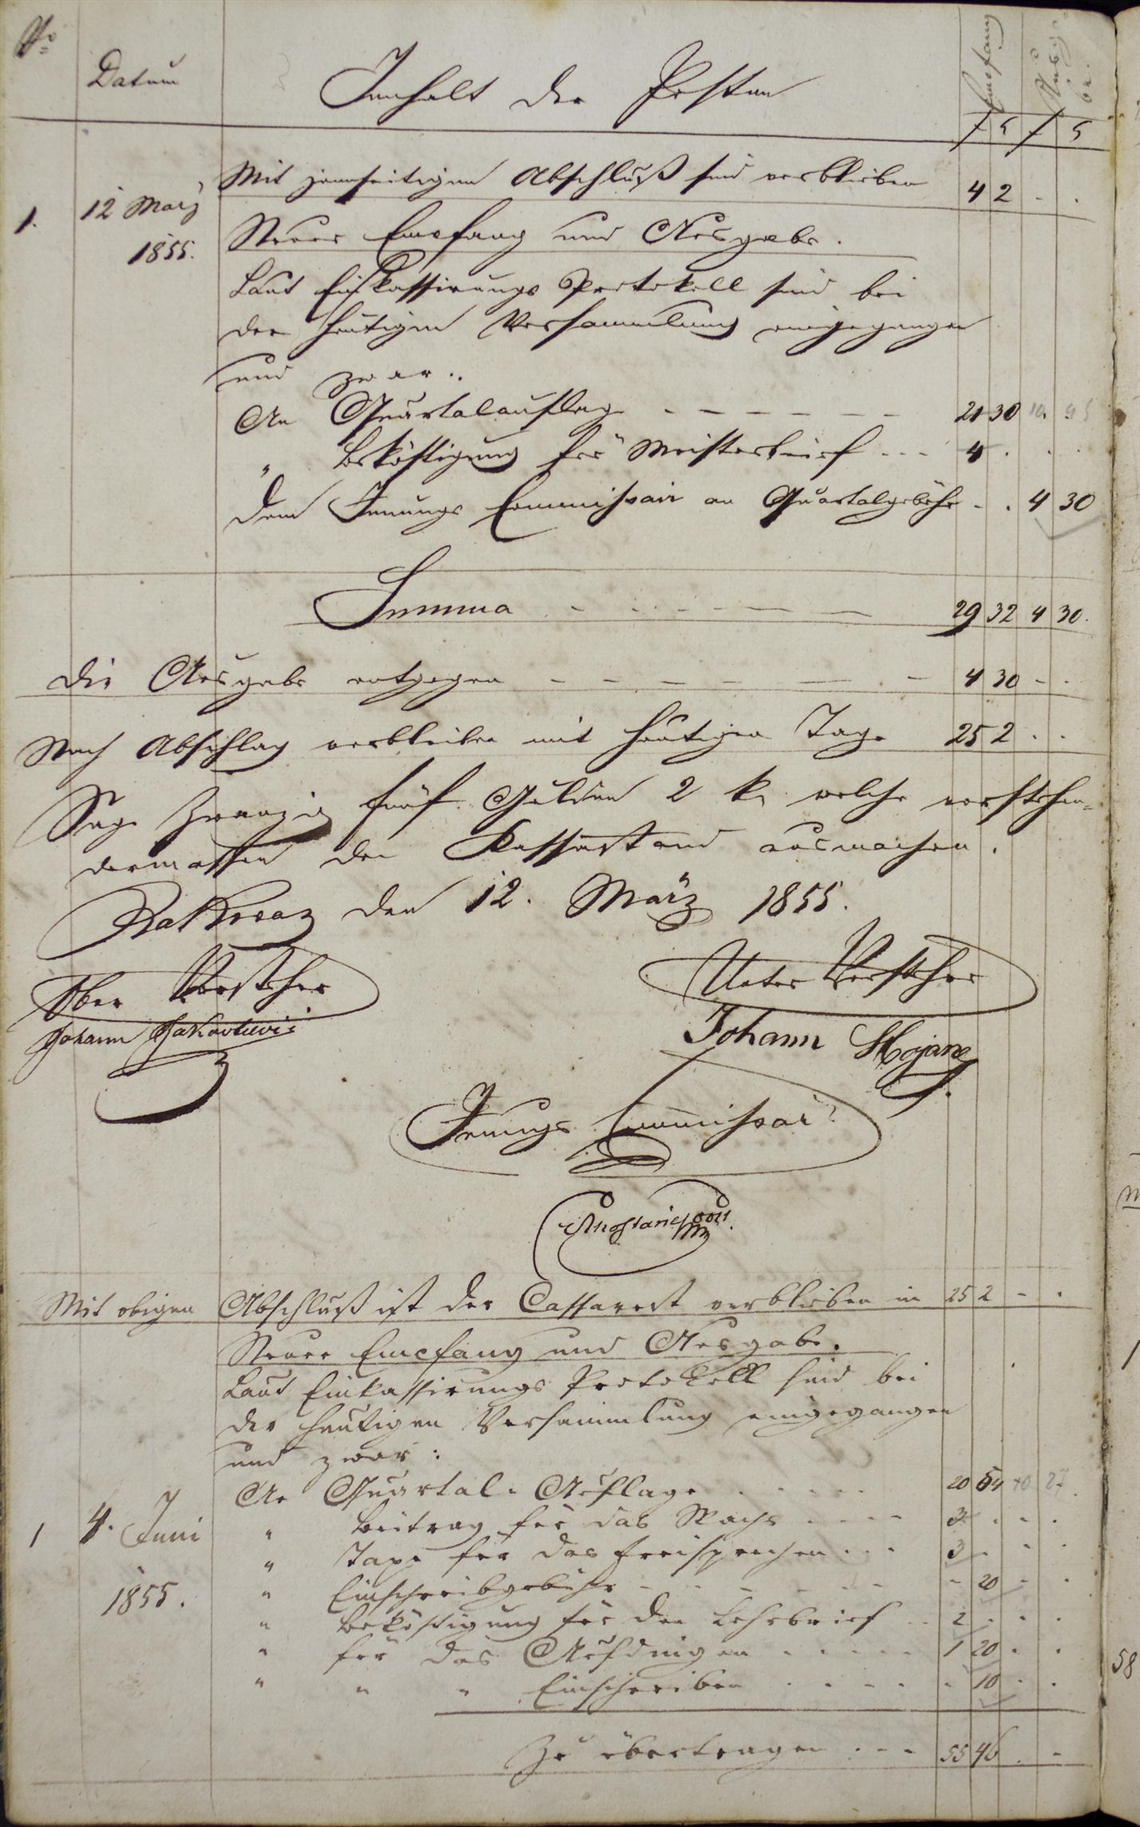 No Datum Inhalt der Posten Empfang Ausgabe
f x f x
Mit jenseitigem Abschluß sind verblieben 4 2 - .
1. 12 März Neuer Empfang und Ausgabe.
1855. Laut Einkassirungs Protokoll sind bei
der heutigen Versammlung eingegangen
und zwar:
An Quartalauflag - - - - - - 21 30
" Beköstigung für Meisterbrief - - - 4 . . .
Dem Innungs Commissair an Quartalgebühr - . 4 30
Summa - - - - - 29 32 4 30.
Die Ausgabe entgegen - - - - - - 4 30 - .
Nach Abschlag verbleiben mit heutigen Tage 25 2 . .
Sage Zwanzig fünf Gulden 2 k. welche vorstehen-
dermassen den Kassastand ausmachen.
den 12. März 1855.
Ober Vorsteher Unter Vorsteher
Johann Johann
Innungs Commissair
Mit obigen Abschluß ist der Cassarest verblieben in 25 2 - .
Neuer Empfang und Ausgabe.
Laut Einkassirungs Protokoll sind bei
der heutigen Versammlung eingegangen
und zwar:
An Quartal-Auflage . . . . . 20 54
1 4. Juni " Beitrag für das Wachs . . . . 3 . - .
" Taxe für das Freisprechen . . . 3 . . .
1855. " Einschreibgebühr - - - - - - 20 - .
" Beköstigung für den Lehrbrief . . 2 . . .
" für das Aufdingen . . . . . 1 20 . .
" " " Einschreiben . . . . . . 10 . .
Zu übertragen . . . 55 46 . -